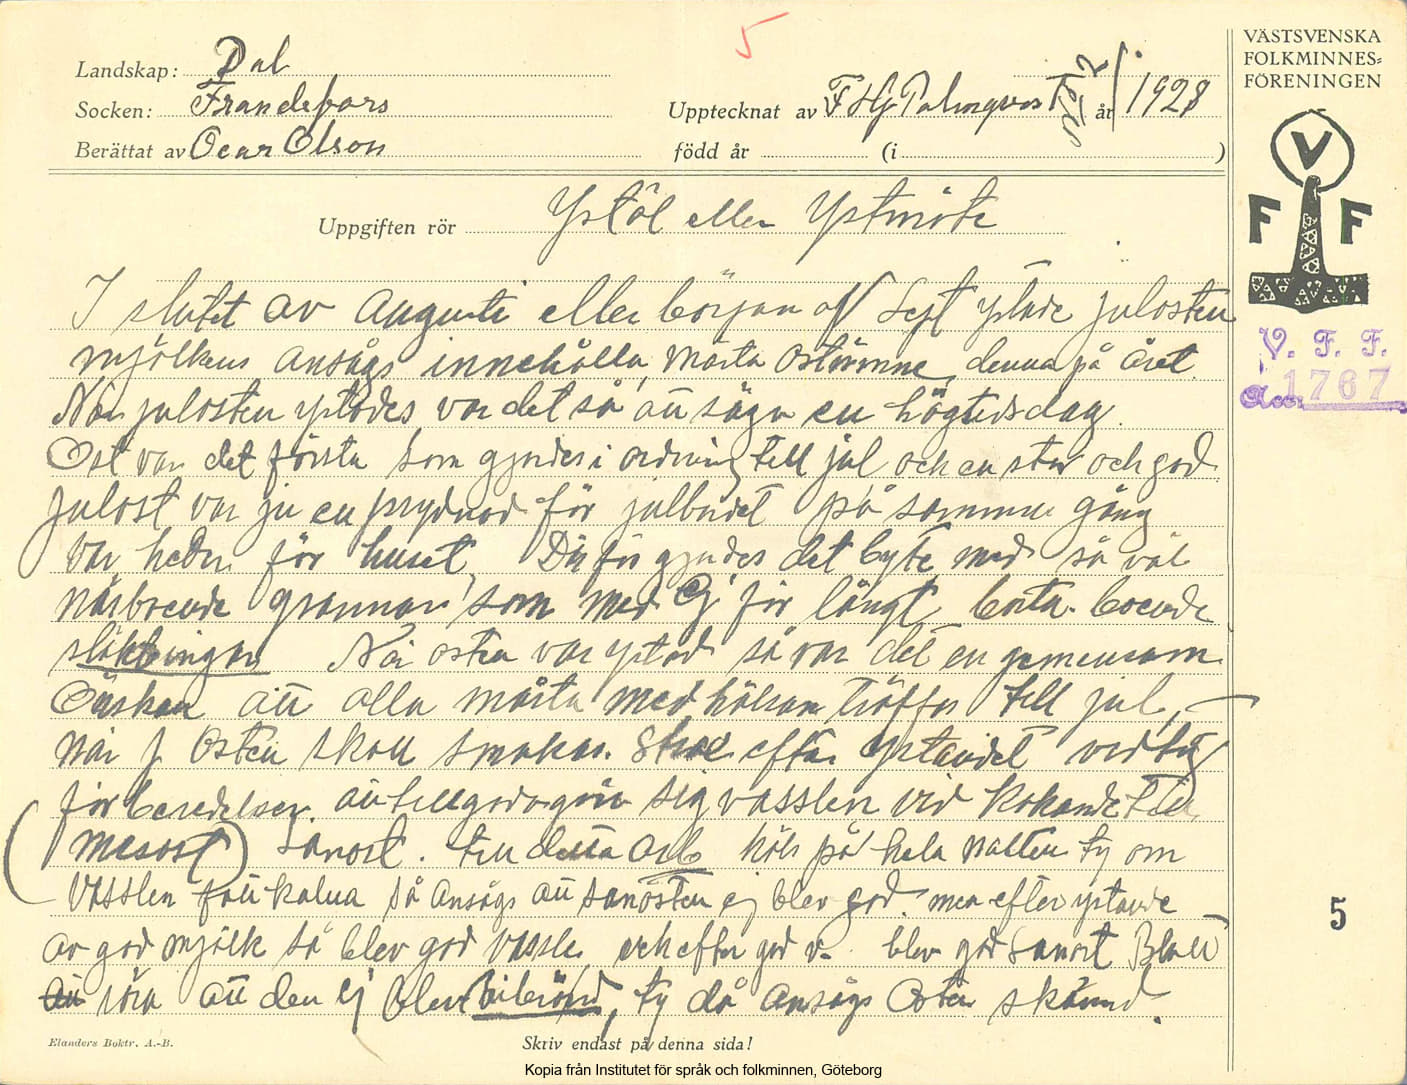 5
Landskap: Dal
Socken: Frändefors
Berättat av Ocar Olson
Upptecknat av F Hj Palmqvist år 1928
född år (i )
VÄSTSVENSKA
FOLKMINNES-
FÖRENINGEN
V
F F
V. F. F.
Acc. 1767
Uppgiften rör Ystöl eller Ystmöte
I slutet av Augusti eller början af Sept ystade julosten
mjölken ansågs innehålla mästa ostämne, denna på året.
När julosten ystades var det så att säga en högtidsdag.
Ost var det första som gjordes i ordning till jul och en stor och god
julost var ju en prydnad för julbordet på samma gång
var heder för huset, Därför gjordes det byte med så väl
närboende grannar som med ej för långt borta boende
släktingar När osten var ystad så var det en gemensam
Önskan att alla måtte med hälsan träffas till jul,
när j Osten skall smakas. Strax efter ystandet vidtog
förberedelser. att tillgodogöra sig vasslen vid kokande till
(mesost) sanost. till detta arb höls på hela natten ty om
Vasslen fått kalna så ansågs att sanosten ej blev god. men efter ystande
av god mjölk så blev god vassle och efter god v. blev god Sanost Blott
att röra att den ej blev vibränd, ty då ansågs Osten skämd.
5
Elanders Boktr. A.-B.
Skriv endast på denna sida!
Kopia från Institutet för språk och folkminnen, Göteborg